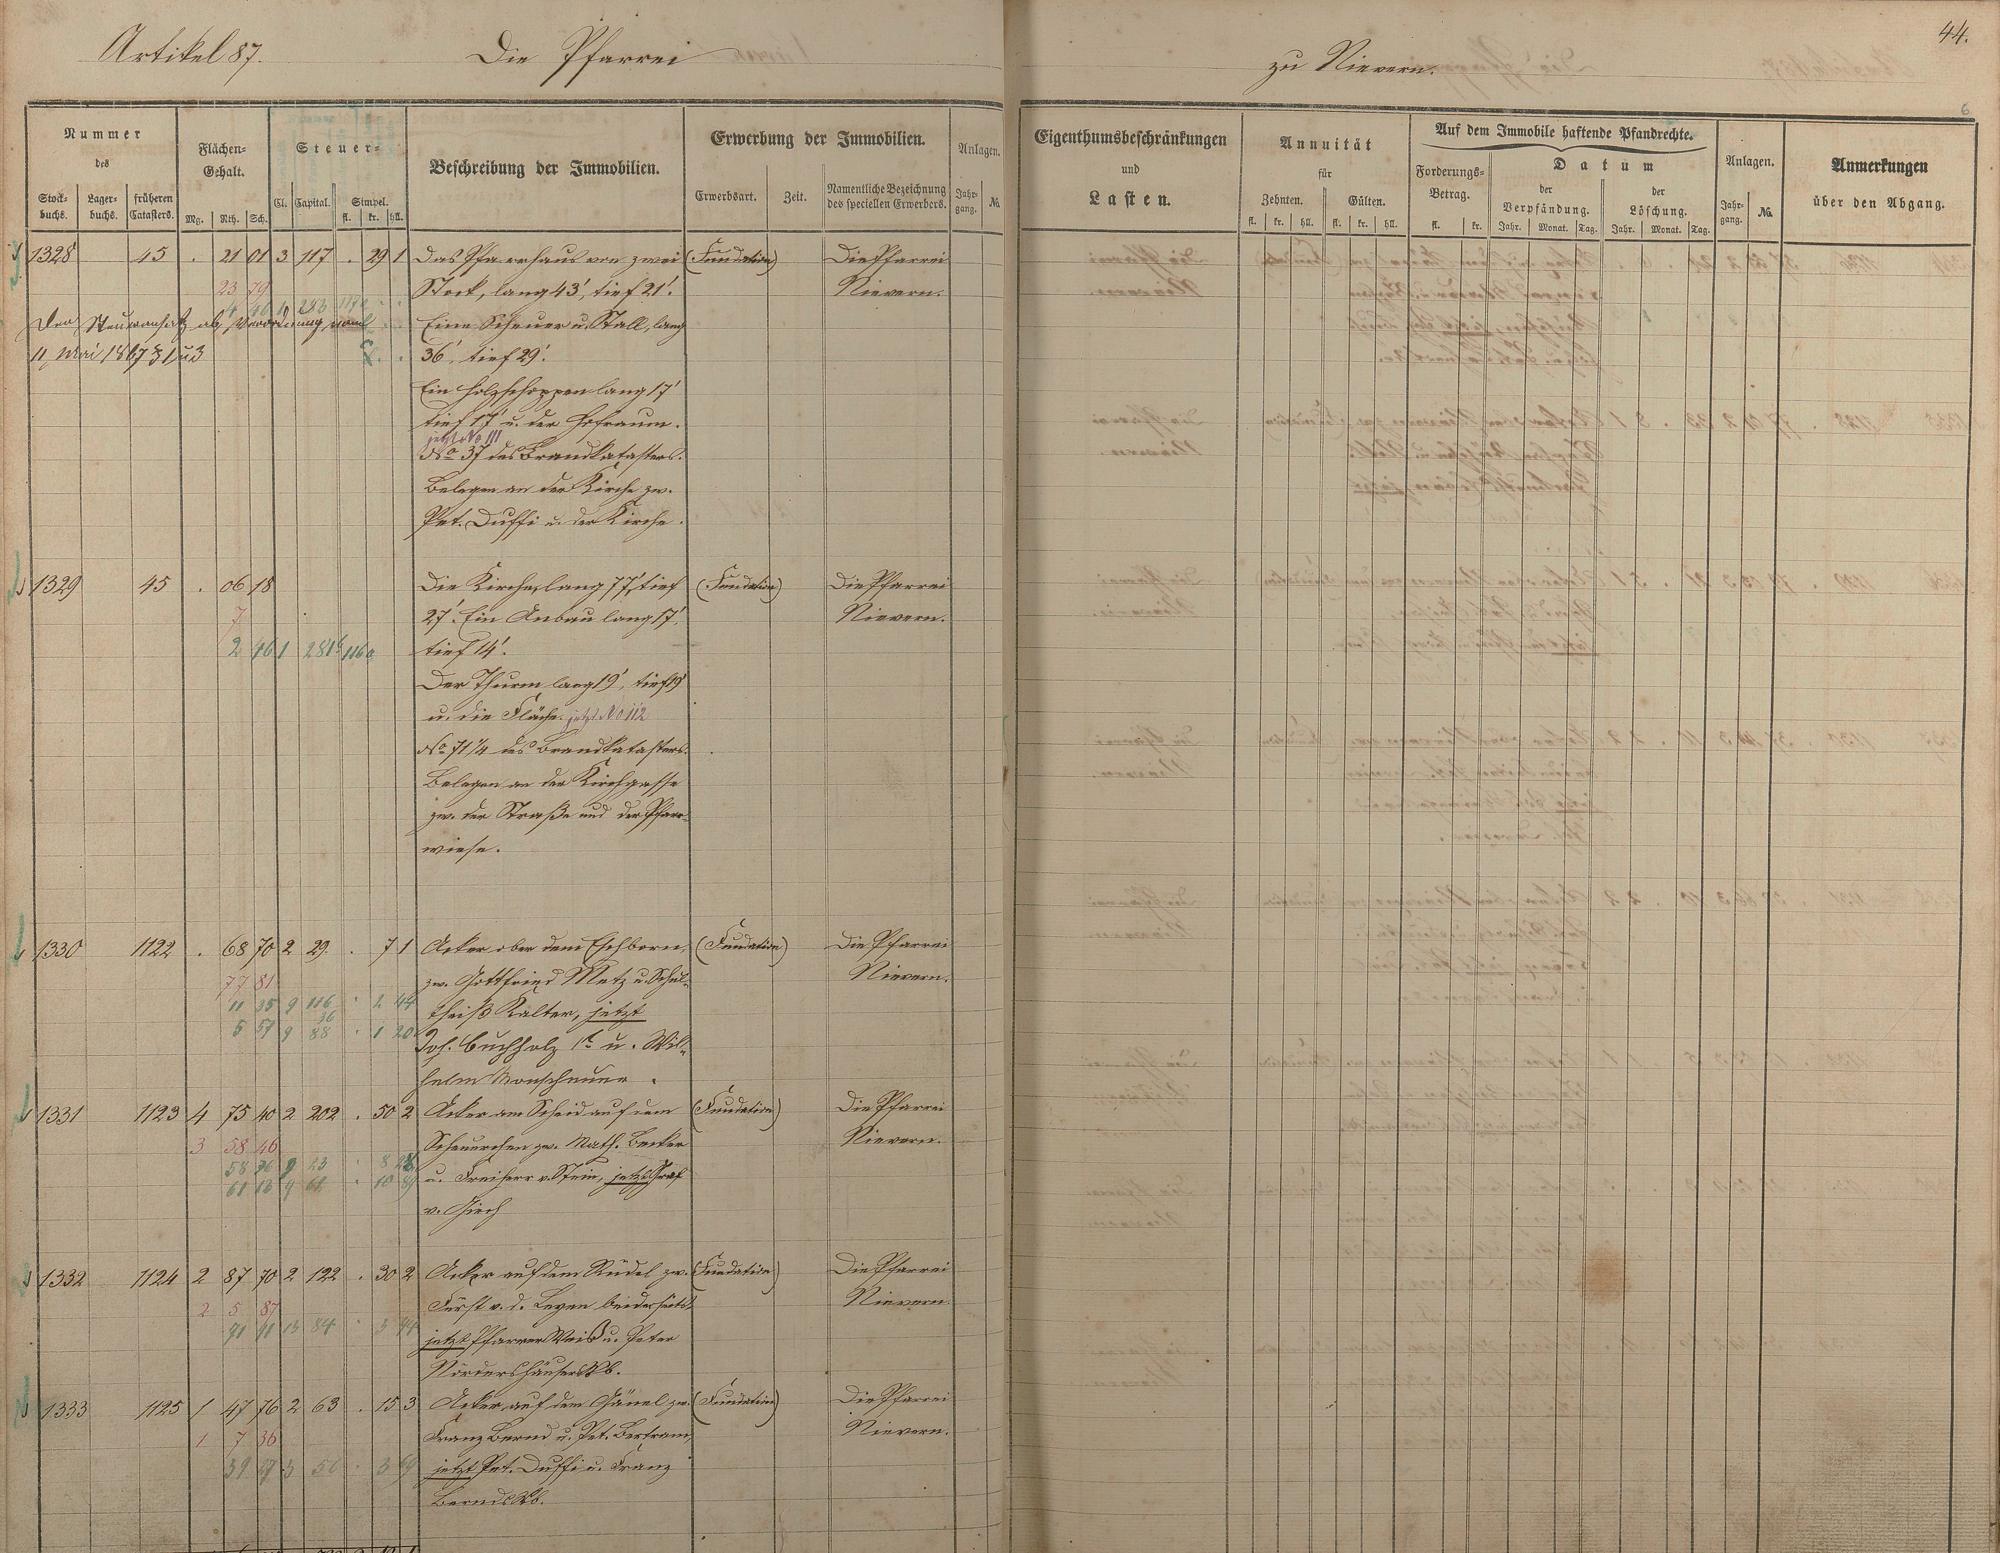 Artikel 87.
Die Pfarrei
zu Nievern.
44.
6
Nummer
des
Stock-
buchs.
Lager-
buchs.
früheren
Catasters.
Flächen-
Gehalt.
Mg. Rth. Sch.
Steuer-
Cl. Capital. Simpel.
fl. kr. hll.
Beschreibung der Immobilien.
Erwerbung der Immobilien.
Erwerbsart. Zeit.
Namentliche Bezeichnung
des speciellen Erwerbers.
Anlagen.
Jahr-
gang. №.
Eigenthumsbeschränkungen
und
Lasten.
Annuität
für
Zehnten. Gülten.
fl. kr. hll. fl. kr. hll.
Auf dem Immobile haftende Pfandrechte.
Forderungs-
Betrag.
fl. kr.
Datum
der
Verpfändung.
Jahr. Monat. Tag.
der
Löschung.
Jahr. Monat. Tag.
Anlagen.
Jahr-
gang. №.
Anmerkungen
über den Abgang.
1328 45 . 21 01 3 117 . 29 1 Das Pfarrhaus von zwei (Fundation) Die Pfarrei
23 79 Stock, lang 43', tief 21'. Nievern.
Der Steueransatz ab, Verordnung vom Eine Scheuer u. Stall, lang
11 Mai 1867 § 1 u 3 36', tief 29'.
Ein Holzschoppen lang 17'
tief 17' u. der Hofraum.
jetzt No 111
No 37 des Brandkatasters.
Belegen an der Kirche zw.
Pet. Duffi u. der Kirche.
1329 45 . 06 18 Die Kirche, lang 77', tief (Fundation) Die Pfarrei
7 27'. Ein Anbau lang 17', Nievern.
2 46 1 tief 14'.
Der Thurm lang 19', tief 19'
u. die Fläche. jetzt No 112
No 71 1/4 des Brandkatasters.
Belegen an der Kirchgasse
zw. der Straße und der Pfarr-
wiese.
1330 1122 . 68 70 2 29 . 7 1 Acker ober dem Eschborn, (Fundation) Die Pfarrei
77 81 zw. Gottfried Metz u. Schul- Nievern.
11 35 9 116 . 2 44 theiß Kalter, jetzt
5 57 9 88 . 1 20 Joh. Buchholz 1r u. Wil-
helm Monscheuer.
1331 1123 4 75 40 2 202 . 50 2 Acker am Scheid auf dem (Fundation) Die Pfarrei
3 58 46 Scheuerchen zw. Math. Becker Nievern.
u. Freiherr v. Stein, jetzt Graf
61 13 9 61 . 10 v. Giech
1332 1124 2 87 70 2 122 . 30 2 Acker auf dem Rüdel zw. (Fundation) Die Pfarrei
2 5 87 Fürst v. d. Leyen beiderseits Nievern.
91 91 13 84 . 3 94 jetzt Pfarrer Weiß u. Peter
Nördershäuser Wb.
1333 1125 1 47 76 2 63 . 15 3 Acker auf dem Gänel zw. (Fundation) Die Pfarrei
1 7 36 Franz Bernd u. Pet. Bertram, Nievern.
jetzt Pet. Duffi u. Franz
Bernds Wb.